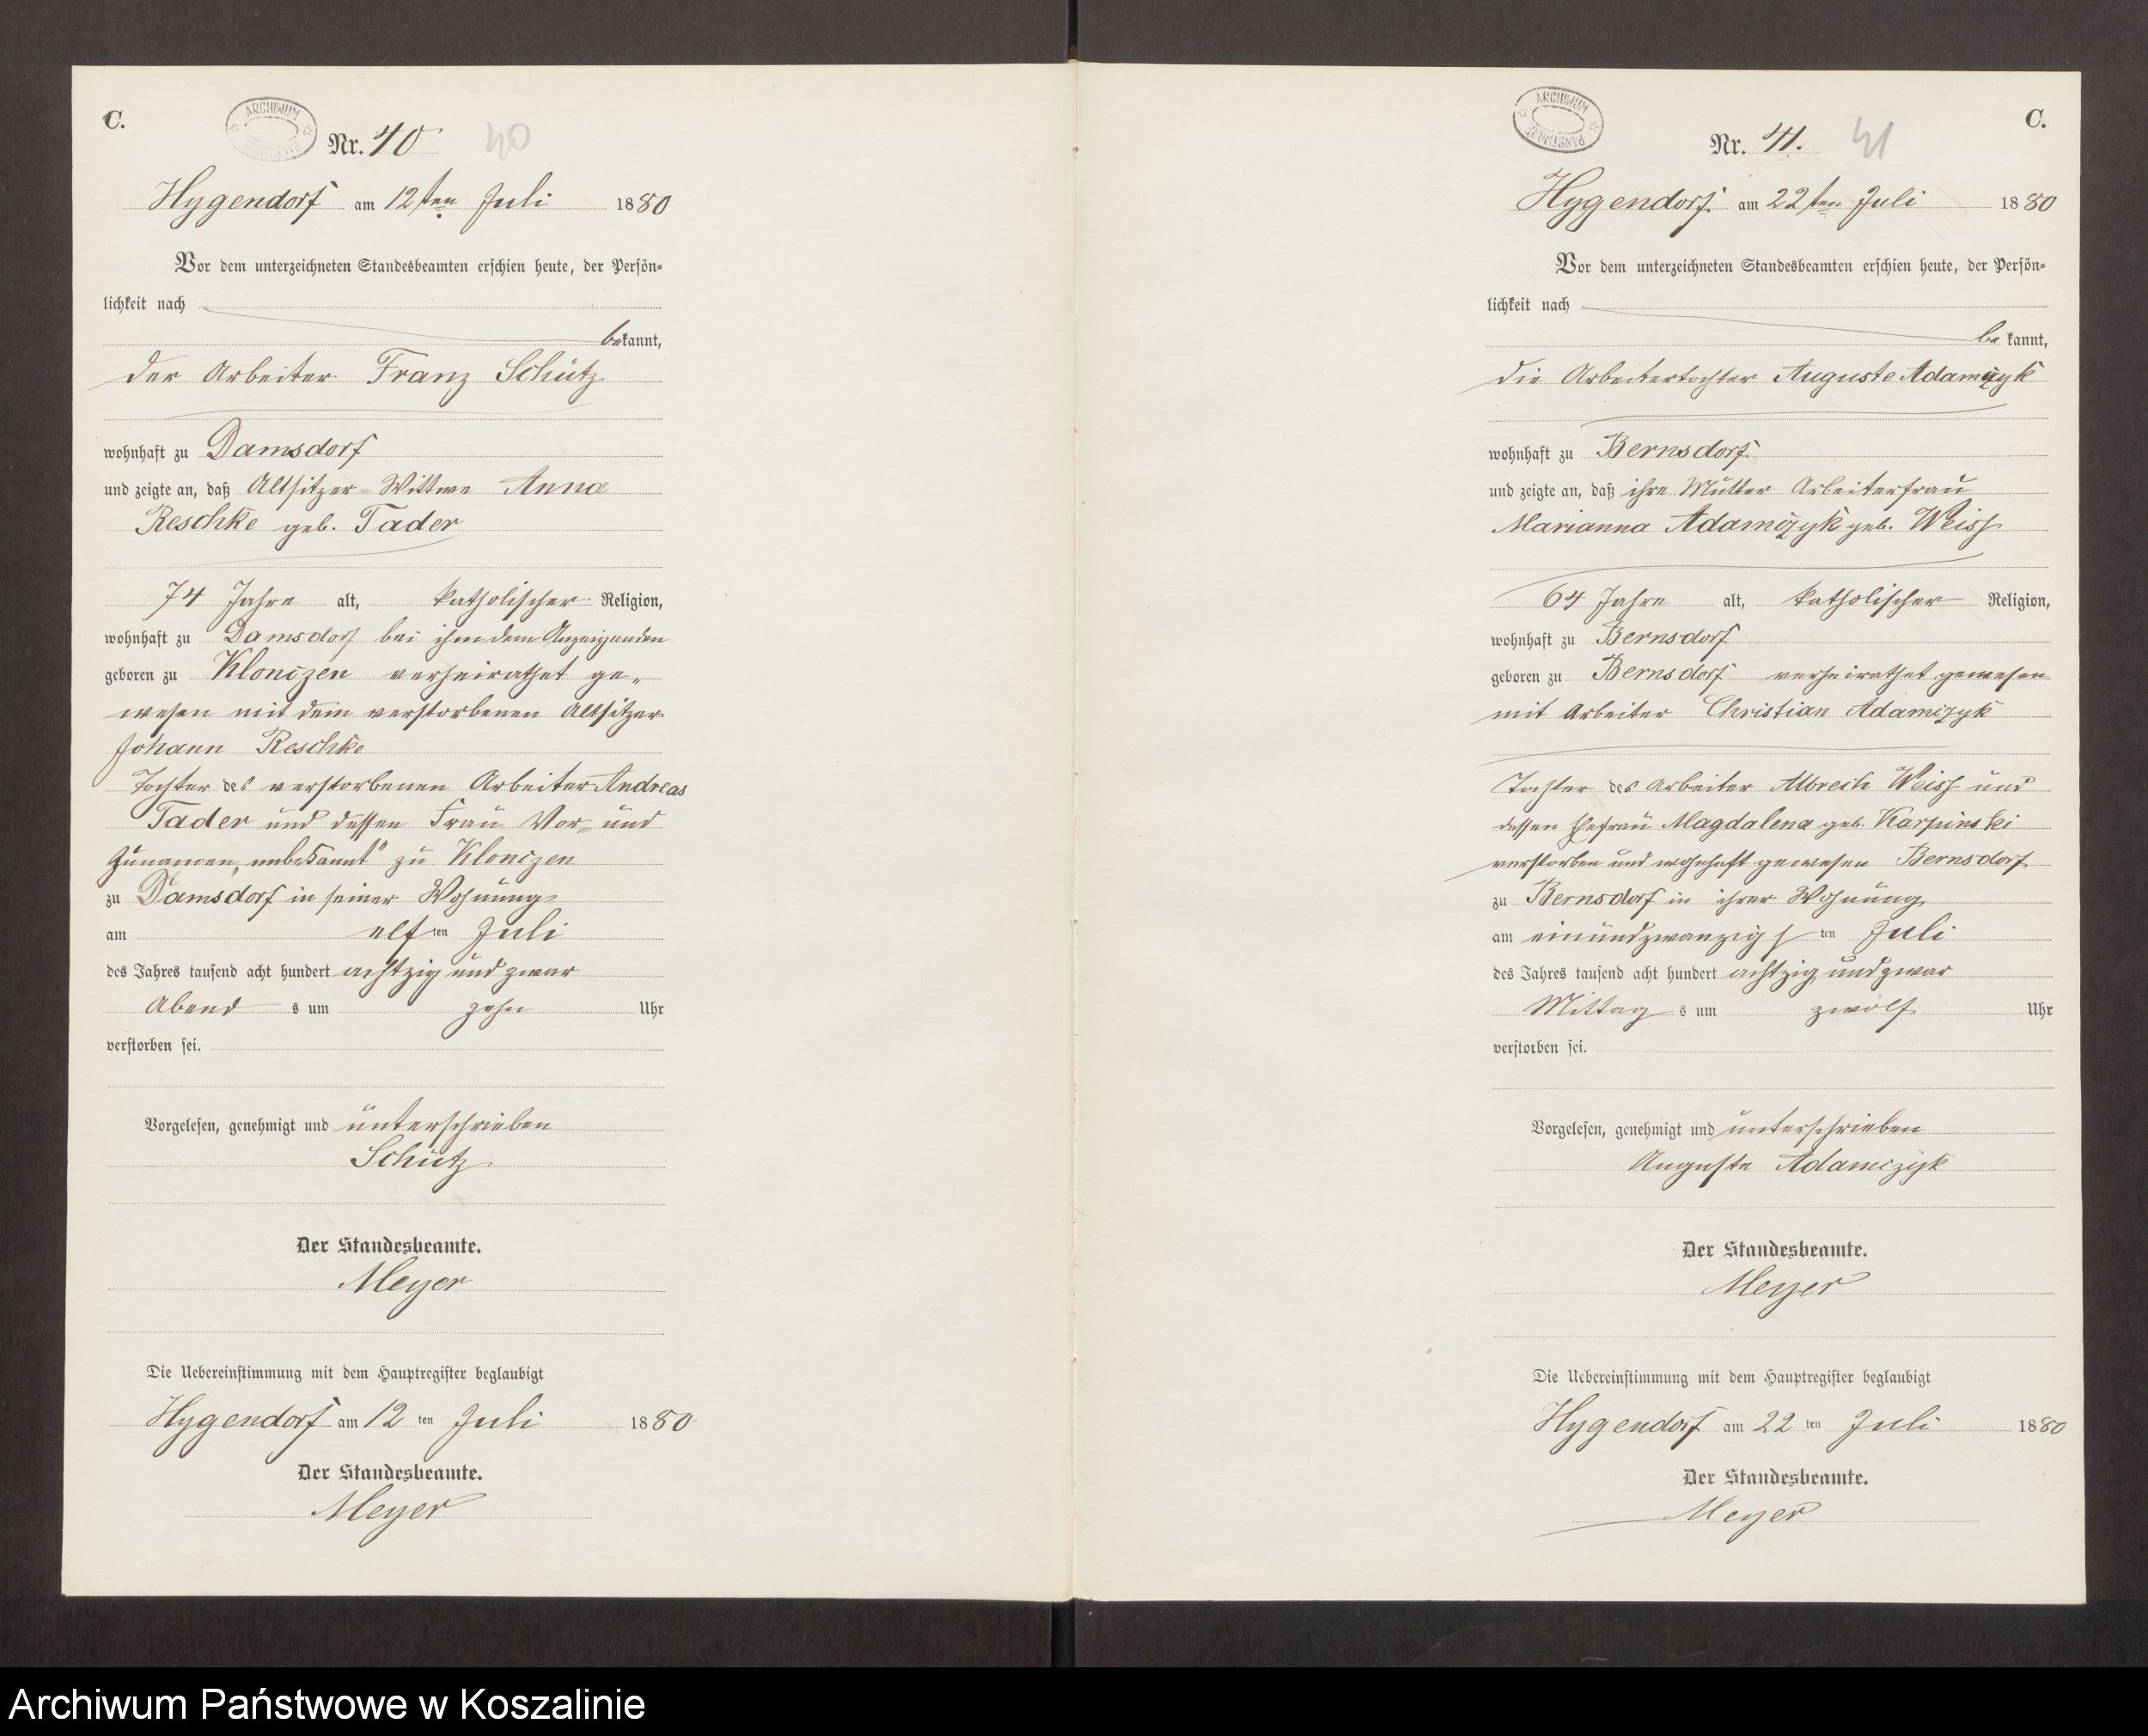 C.
ARCHIWUM
Nr. 40 40
Hygendorf am 12ten Juli 1880
Vor dem unterzeichneten Standesbeamten erschien heute, der Persön-
lichkeit nach
bekannt,
der Arbeiter Franz Schütz
wohnhaft zu Damsdorf
und zeigte an, daß Altsitzer-Wittwe Anna
Reschke geb. Tader
74 Jahre alt, katholischer Religion,
wohnhaft zu Damsdorf bei ihm dem Anzeigenden
geboren zu Klonczen verheirathet ge-
wesen mit dem verstorbenen Altsitzer
Johann Reschke
Tochter des verstorbenen Arbeiter Andreas
Tader und dessen Frau Vor- und
Zunamen „unbekannt" zu Klonczen
zu Damsdorf in seiner Wohnung
am elften Juli
des Jahres tausend acht hundert achtzig und zwar
Abends um zehn Uhr
verstorben sei.
Vorgelesen, genehmigt und unterschrieben
Schütz
Der Standesbeamte.
Meyer
Die Uebereinstimmung mit dem Hauptregister beglaubigt
Hygendorf am 12ten Juli 1880
Der Standesbeamte.
Meyer
ARCHIWUM PAŃSTWOWE
C.
Nr. 41. 41
Hygendorf am 22ten Juli 1880
Vor dem unterzeichneten Standesbeamten erschien heute, der Persön-
lichkeit nach
bekannt,
die Arbeitertochter Auguste Adamczyk
wohnhaft zu Bernsdorf
und zeigte an, daß ihre Mutter Arbeiterfrau
Marianna Adamczyk geb. Weiss
64 Jahre alt, katholischer Religion,
wohnhaft zu Bernsdorf
geboren zu Bernsdorf verheirathet gewesen
mit Arbeiter Christian Adamczyk
Tochter des Arbeiter Albrech Weiss und
dessen Ehefrau Magdalena geb. Karpinski
verstorben und wohnhaft gewesen Bernsdorf
zu Bernsdorf in ihrer Wohnung
am einundzwanzigsten Juli
des Jahres tausend acht hundert achtzig und zwar
Mittags um zwölf Uhr
verstorben sei.
Vorgelesen, genehmigt und unterschrieben
Auguste Adamczyk
Der Standesbeamte.
Meyer
Die Uebereinstimmung mit dem Hauptregister beglaubigt
Hygendorf am 22ten Juli 1880
Der Standesbeamte.
Meyer
Archiwum Państwowe w Koszalinie